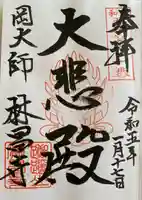 奉拝
令和五年
一月十七日
大悲殿
岡大師